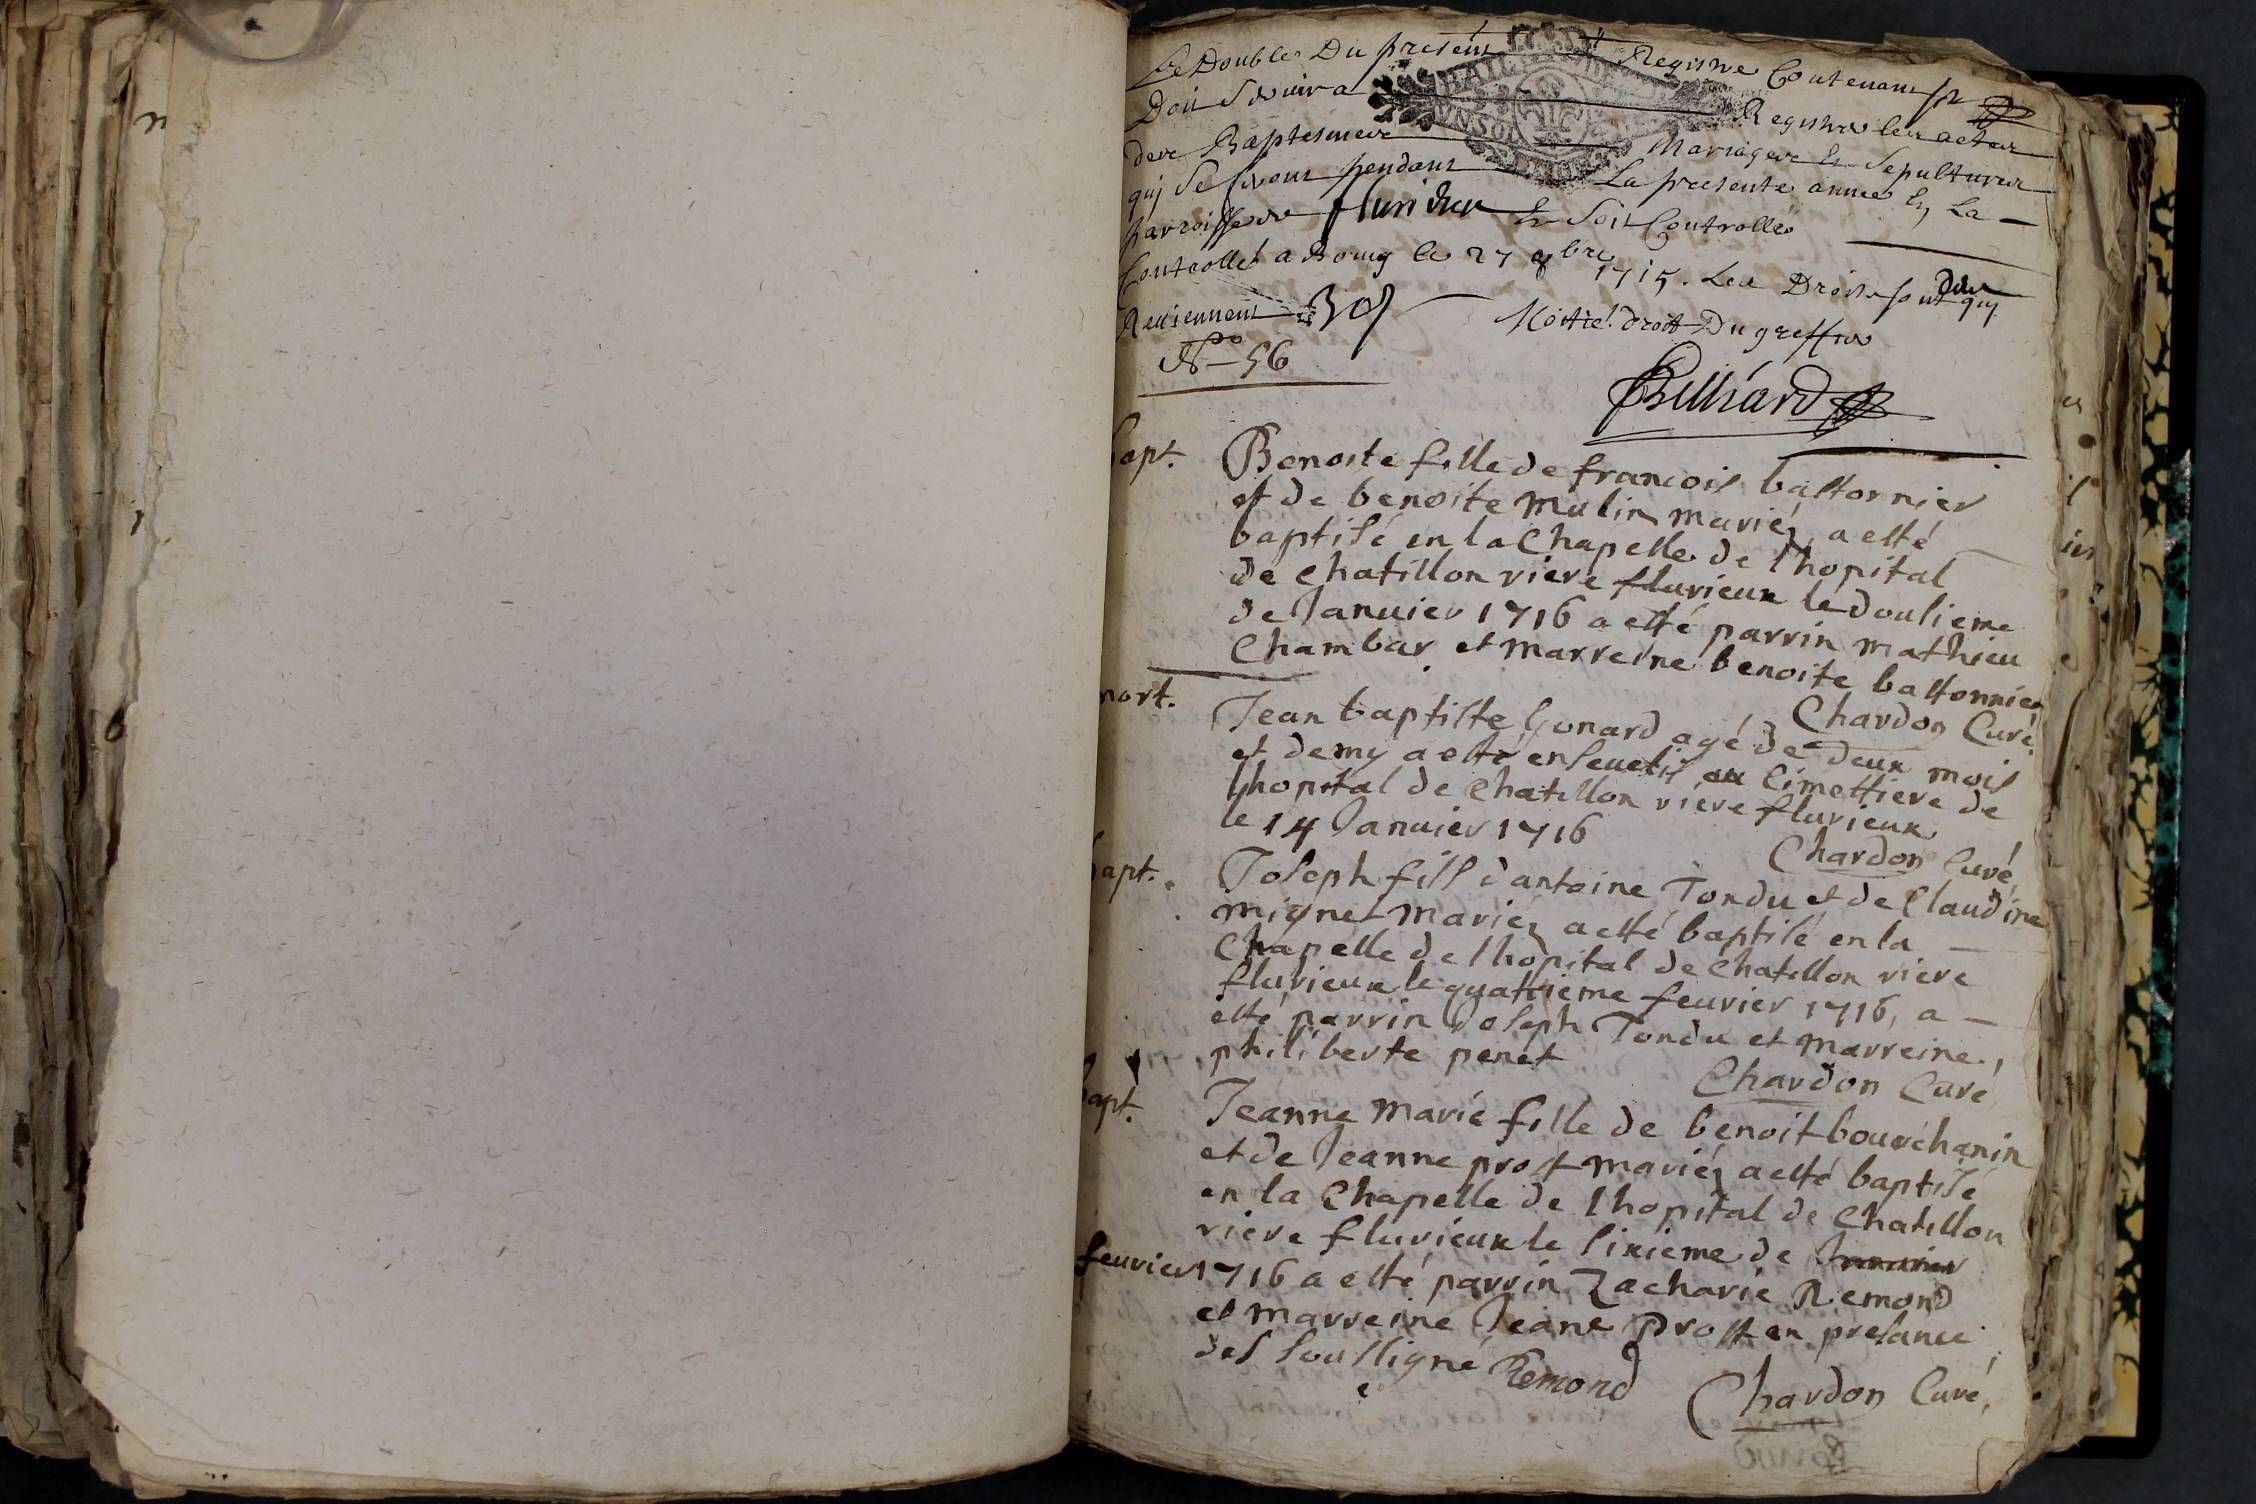 Le Double Du present Registre Contenant
Doit Servir a Registrer les actes
des Baptesmes Mariages Et Sepultures
qui Se feront pendant La presente année En La
Parroisse de flurieux Et Soit Controllé
Controllé a Bourg le 27 9bre 1715. Les Droits sont deus qui
Reviennent Moitié droit Du greffier
No 56
Billiard
bapt. Benoite fille de francois bastonnier
et de benoite Mulin mariéz, a esté
baptisé en la Chapelle de l'hopital
de chatillon riere flurieux le dousieme
de Januier 1716 a esté parrin mathieu
Chambar et marreine benoite bastonnier
Chardon Curé
mort. Jean baptiste Gonard agé de deux mois
et demy a esté enseueli au Cimettiere de
lhopital de chatillon riere flurieux
le 14 Januier 1716
Chardon Curé
bapt. Joseph fils d'antoine Tondu et de Claudine
migne mariéz a esté baptisé en la
Chapelle de lhopital de chatillon riere
flurieux le quattrieme feurier 1716, a
esté parrin Joseph Tondu et marreine
philiberte penet
Chardon Curé
bapt. Jeanne marie fille de benoit bourchanin
et de Jeanne prost mariéz a esté baptisé
en la Chapelle de lhopital de chatillon
riere flurieux le sixieme de Januier
feurier 1716 a esté parrin Zacharie Remond
et marreine Jeane Prost en presance
des soussigné Remond
Chardon Curé